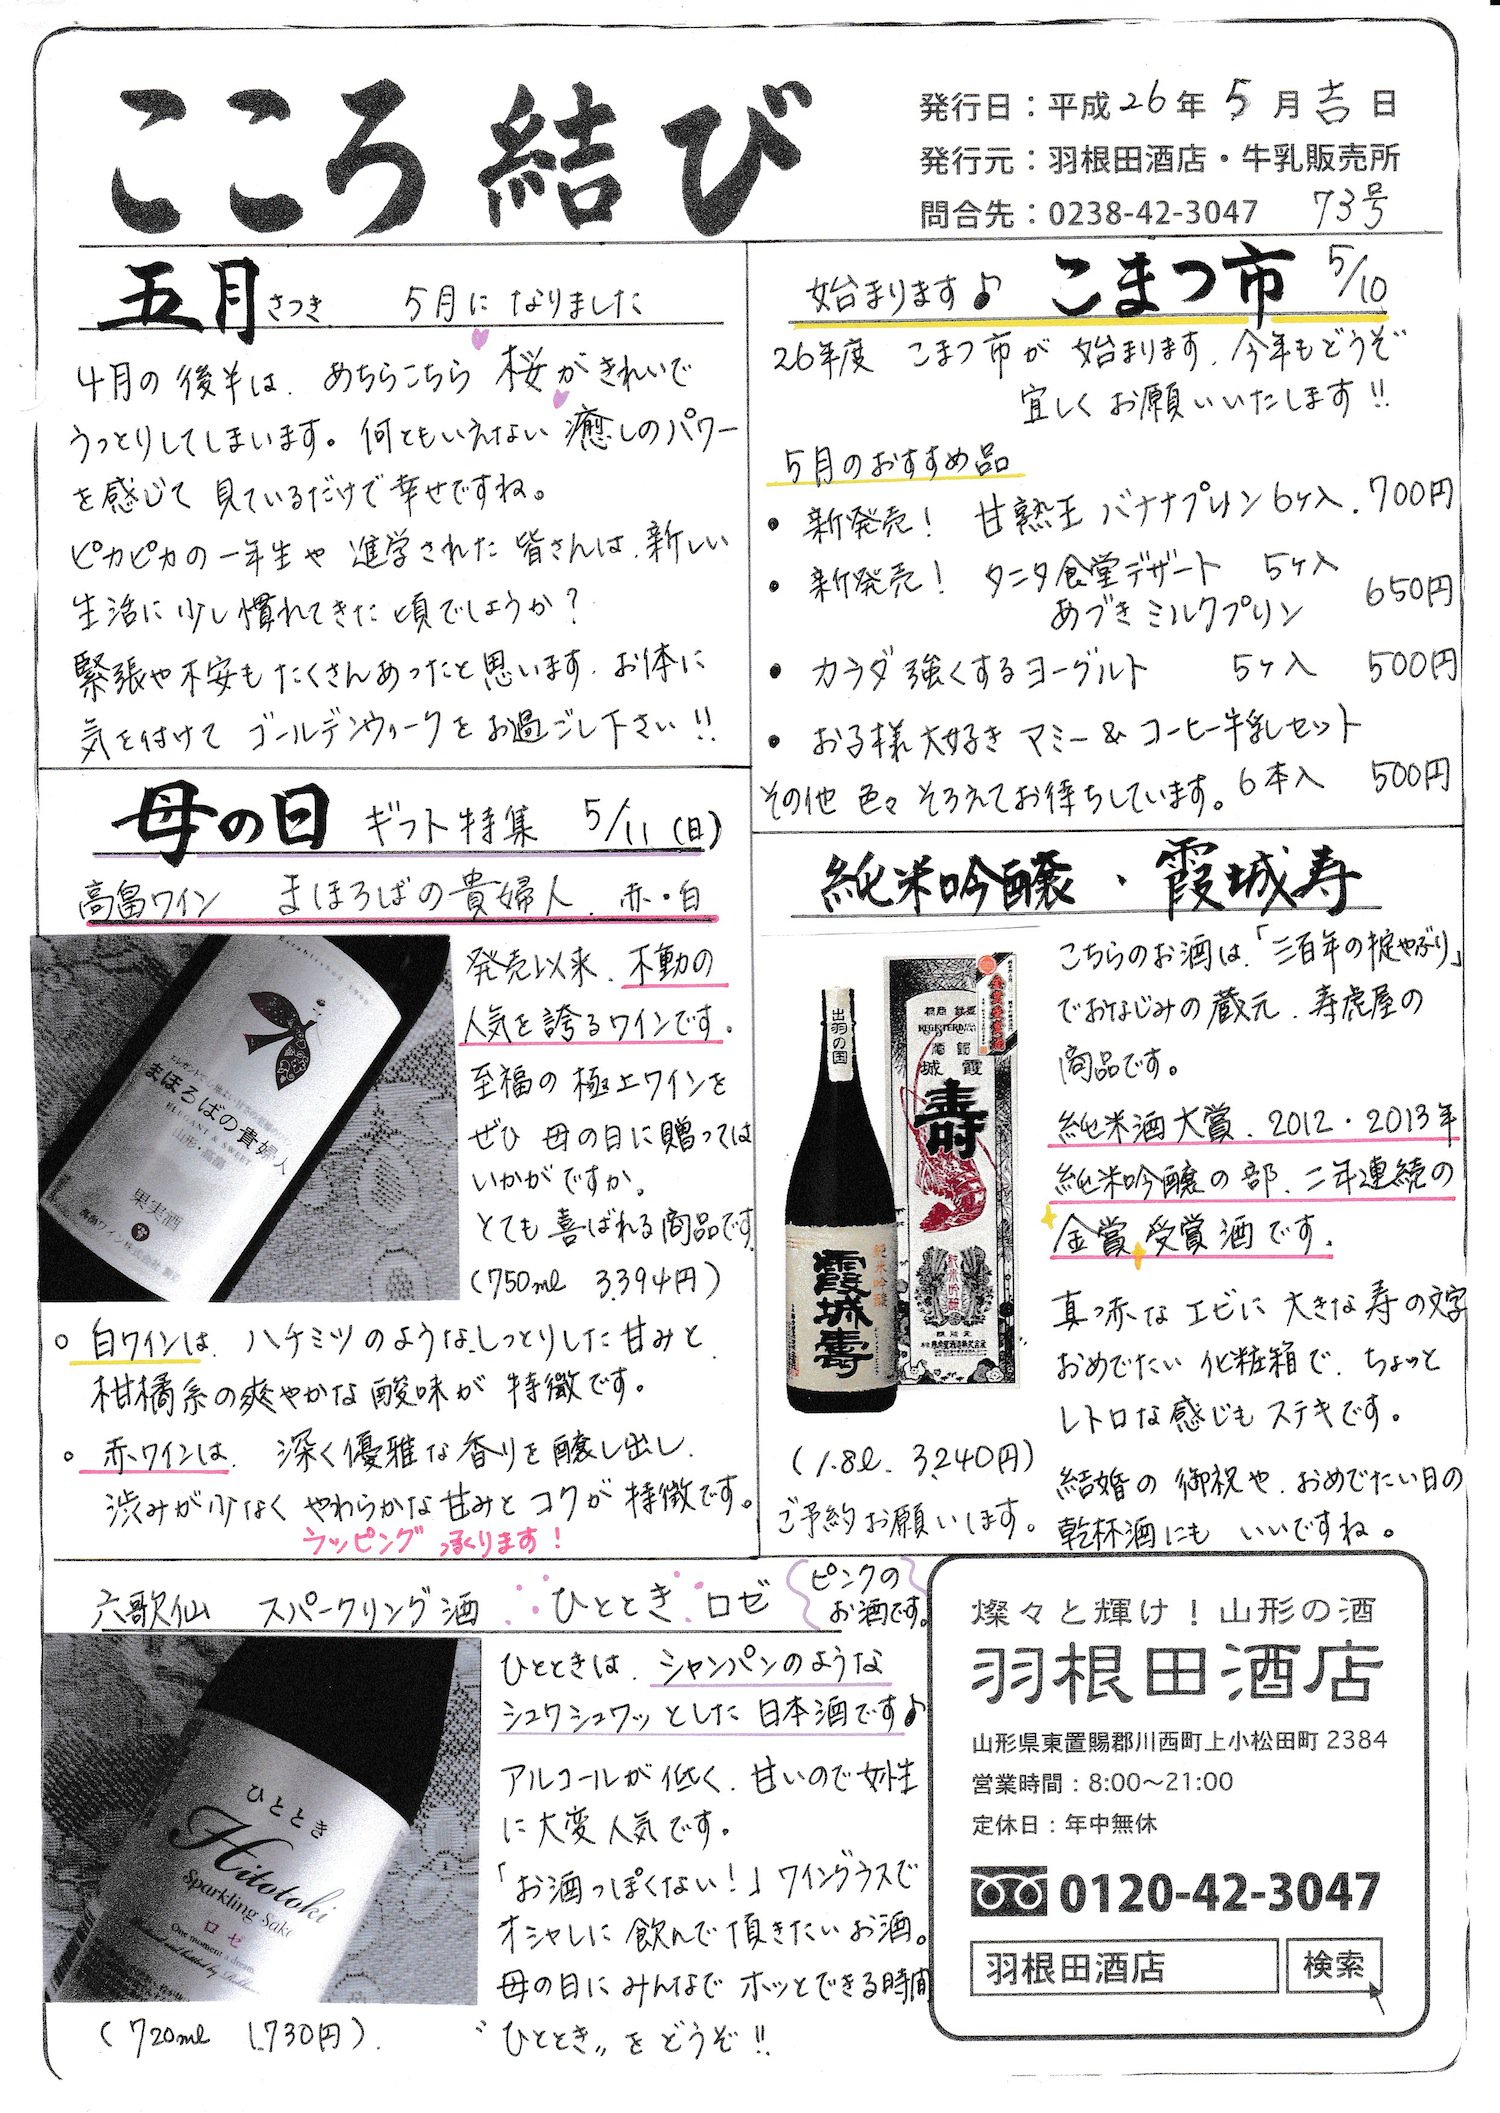 こころ結び
発行日：平成26年5月吉日
発行元：羽根田酒店・牛乳販売所
問合先：0238-42-3047 73号
五月 さつき 5月になりました
4月の後半は、あちらこちら桜がきれいで
うっとりしてしまいます。何ともいえない癒しのパワー
を感じて見ているだけで幸せですね。
ピカピカの一年生や進学された皆さんは、新しい
生活に少し慣れてきた頃でしょうか？
緊張や不安もたくさんあったと思います。お体に
気を付けてゴールデンウィークをお過ごし下さい!!
始まります♪ こまつ市 5/10
26年度 こまつ市が始まります。今年もどうぞ
宜しくお願いいたします!!
5月のおすすめ品
・新発売！ 甘熟王バナナプリン6ヶ入 700円
・新発売！ タニタ食堂デザート 5ヶ入
あづきミルクプリン 650円
・カラダ強くするヨーグルト 5ヶ入 500円
・お子様大好きマミー＆コーヒー牛乳セット
6本入 500円
その他 色々そろえてお待ちしています。
母の日 ギフト特集 5/11(日)
高畠ワイン まほろばの貴婦人 赤・白
発売以来、不動の
人気を誇るワインです。
至福の極上ワインを
ぜひ母の日に贈っては
いかがですか。
とても喜ばれる商品です
(750ml 3,394円)
まほろばの貴婦人
ELEGANT & SWEET
山形・高畠
果実酒
○白ワインは、ハチミツのような、しっとりした甘みと、
柑橘系の爽やかな酸味が特徴です。
○赤ワインは、深く優雅な香りを醸し出し、
渋みが少なくやわらかな甘みとコクが特徴です。
ラッピング承ります！
純米吟醸・霞城寿
こちらのお酒は、「三百年の掟やぶり」
でおなじみの蔵元、寿虎屋の
商品です。
純米酒大賞、2012・2013年
純米吟醸の部、二年連続の
金賞受賞酒です。
真っ赤なエビに大きな寿の文字
おめでたい化粧箱で、ちょっと
レトロな感じもステキです。
結婚の御祝や、おめでたい日の
乾杯酒にもいいですね。
出羽の国
純米吟醸
霞城壽
城霞
壽
(1.8l. 3,240円)
ご予約お願いします。
六歌仙 スパークリング酒 ひととき ロゼ
ピンクの
お酒です。
ひとときは、シャンパンのような
シュワシュワッとした日本酒です♪
アルコールが低く、甘いので女性
に大変人気です。
「お酒っぽくない！」ワイングラスで
オシャレに飲んで頂きたいお酒。
母の日にみんなでホッとできる時間
〝ひととき〟をどうぞ!!
ひととき
Hitotoki
Sparkling Sake
ロゼ
(720ml 1,730円)
燦々と輝け！山形の酒
羽根田酒店
山形県東置賜郡川西町上小松田町2384
営業時間：8:00〜21:00
定休日：年中無休
0120-42-3047
羽根田酒店 検索